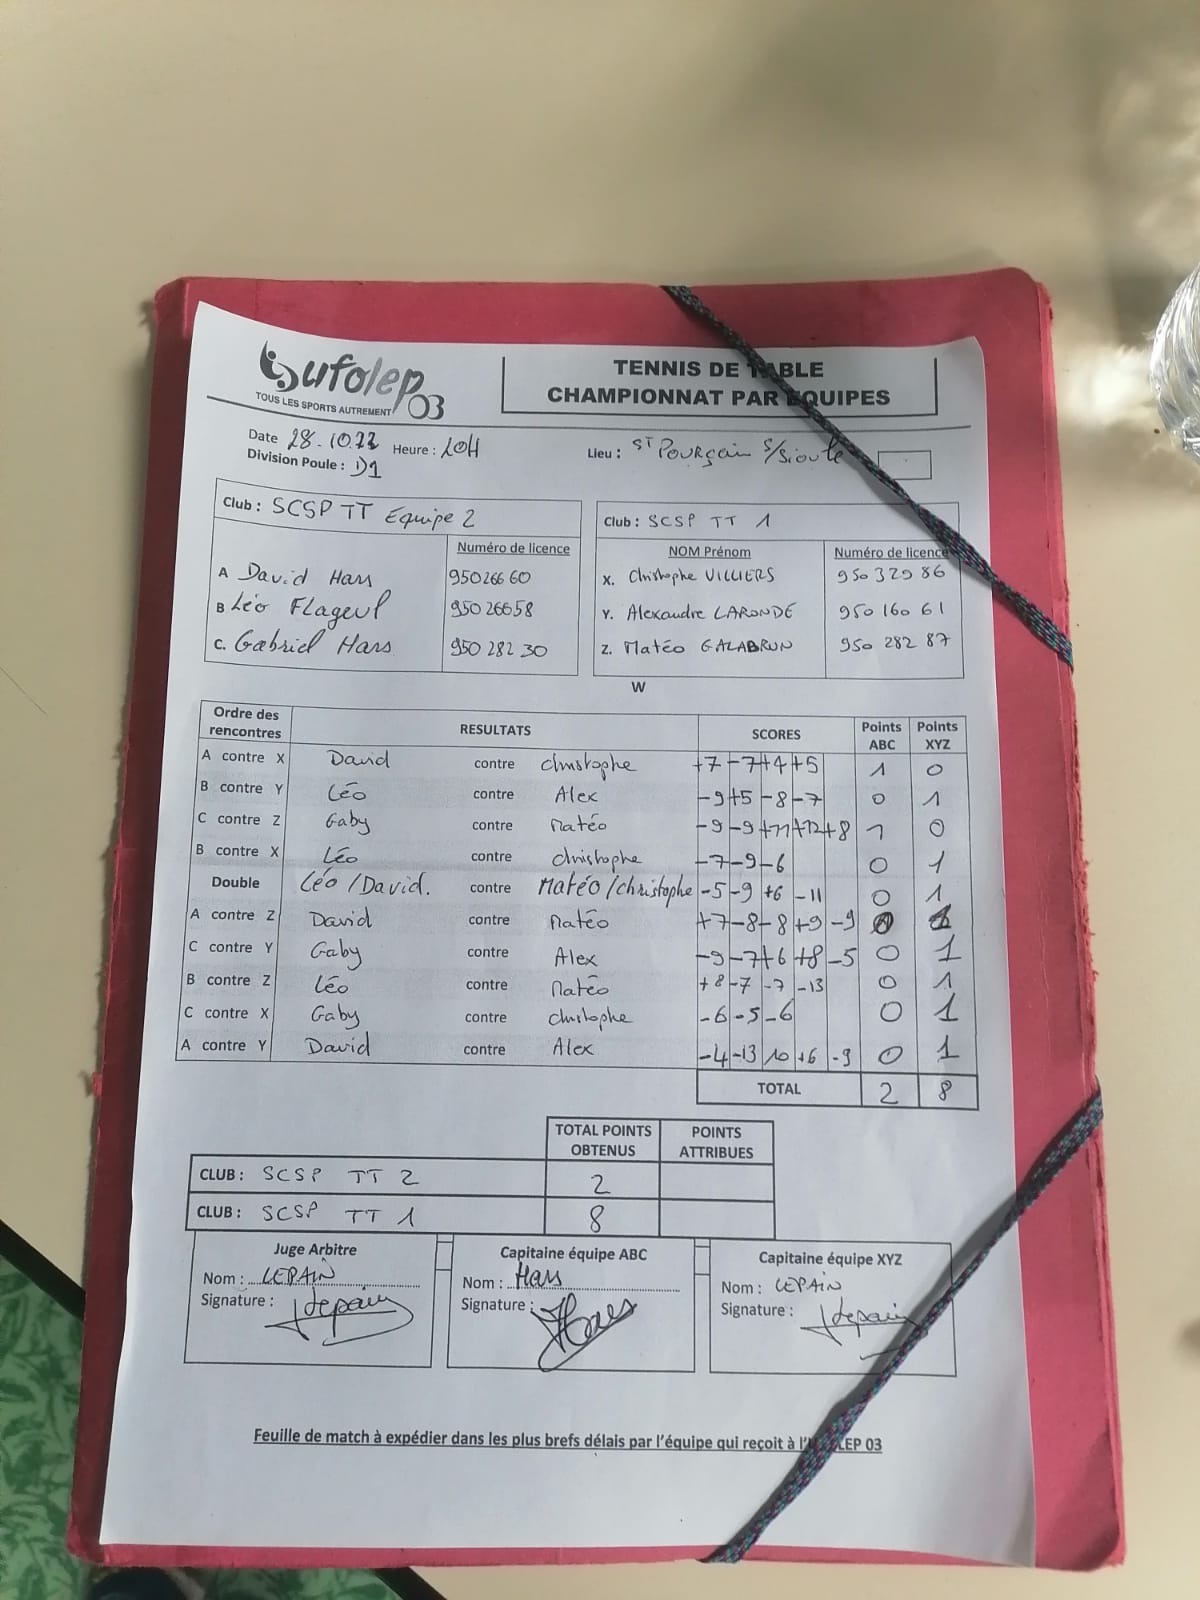 ufolep 03
TOUS LES SPORTS AUTREMENT
TENNIS DE TABLE
CHAMPIONNAT PAR EQUIPES
Date 28.10.22 Heure : 20H Lieu : ST POURÇAIN S/Sioule
Division Poule : D1
Club : SCSP TT Equipe 2
Numéro de licence
A David Hars 950266 60
B Léo Flageul 950 26658
C. Gabriel Hars 950 282 30
Club : SCSP TT 1
NOM Prénom Numéro de licence
X. Christophe VILLIERS 950 329 86
Y. Alexandre LARONDE 950 160 61
Z. Matéo GALABRUN 950 282 87
W
Ordre des rencontres RESULTATS SCORES Points ABC Points XYZ
A contre X David contre christophe +7 -7 +4 +5 1 0
B contre Y Léo contre Alex -9 +5 -8 -7 0 1
C contre Z Gaby contre Matéo -9 -9 +11 +12 +8 1 0
B contre X Léo contre christophe -7 -9 -6 0 1
Double Léo / David. contre Matéo / christophe -5 -9 +6 -11 0 1
A contre Z David contre Matéo +7 -8 -8 +9 -9 0 1
C contre Y Gaby contre Alex -9 -7 +6 +8 -5 0 1
B contre Z Léo contre Matéo +8 -7 -7 -13 0 1
C contre X Gaby contre christophe -6 -5 -6 0 1
A contre Y David contre Alex -4 -13 10 +6 -9 0 1
TOTAL 2 8
TOTAL POINTS OBTENUS POINTS ATTRIBUES
CLUB : SCSP TT 2 2
CLUB : SCSP TT 1 8
Juge Arbitre
Nom : LEPAIN
Signature : Lepain
Capitaine équipe ABC
Nom : Hars
Signature : Hars
Capitaine équipe XYZ
Nom : LEPAIN
Signature : Lepain
Feuille de match à expédier dans les plus brefs délais par l'équipe qui reçoit à l'UFOLEP 03